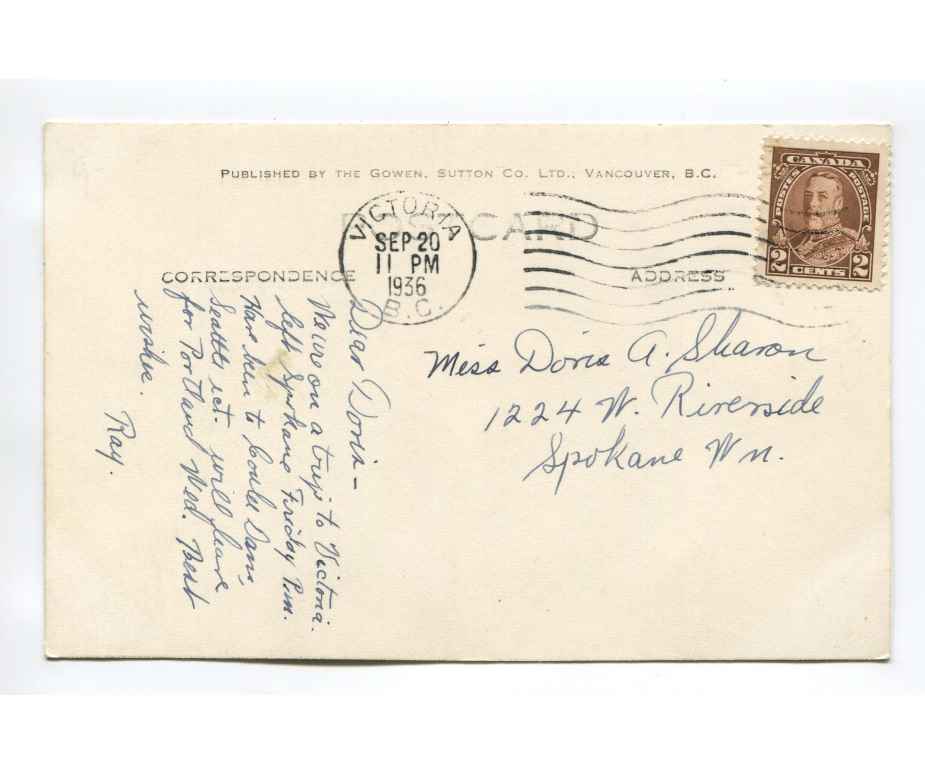 PUBLISHED BY THE GOWEN, SUTTON CO. LTD., VANCOUVER, B.C.
POSTCARD
CORRESPONDENCE
ADDRESS
VICTORIA
SEP 20
11 PM
1936
B.C.
CANADA
POSTES POSTAGE
2 CENTS 2
Dear Doris –
We are on a trip to Victoria.
left Spokane Friday P.m.
Have been to Coulee Dam,
Seattle ect. will leave
for Portland Wed. Best
wishes.
Ray.
Miss Doris A. Sharon
1224 W. Riverside
Spokane Wn.